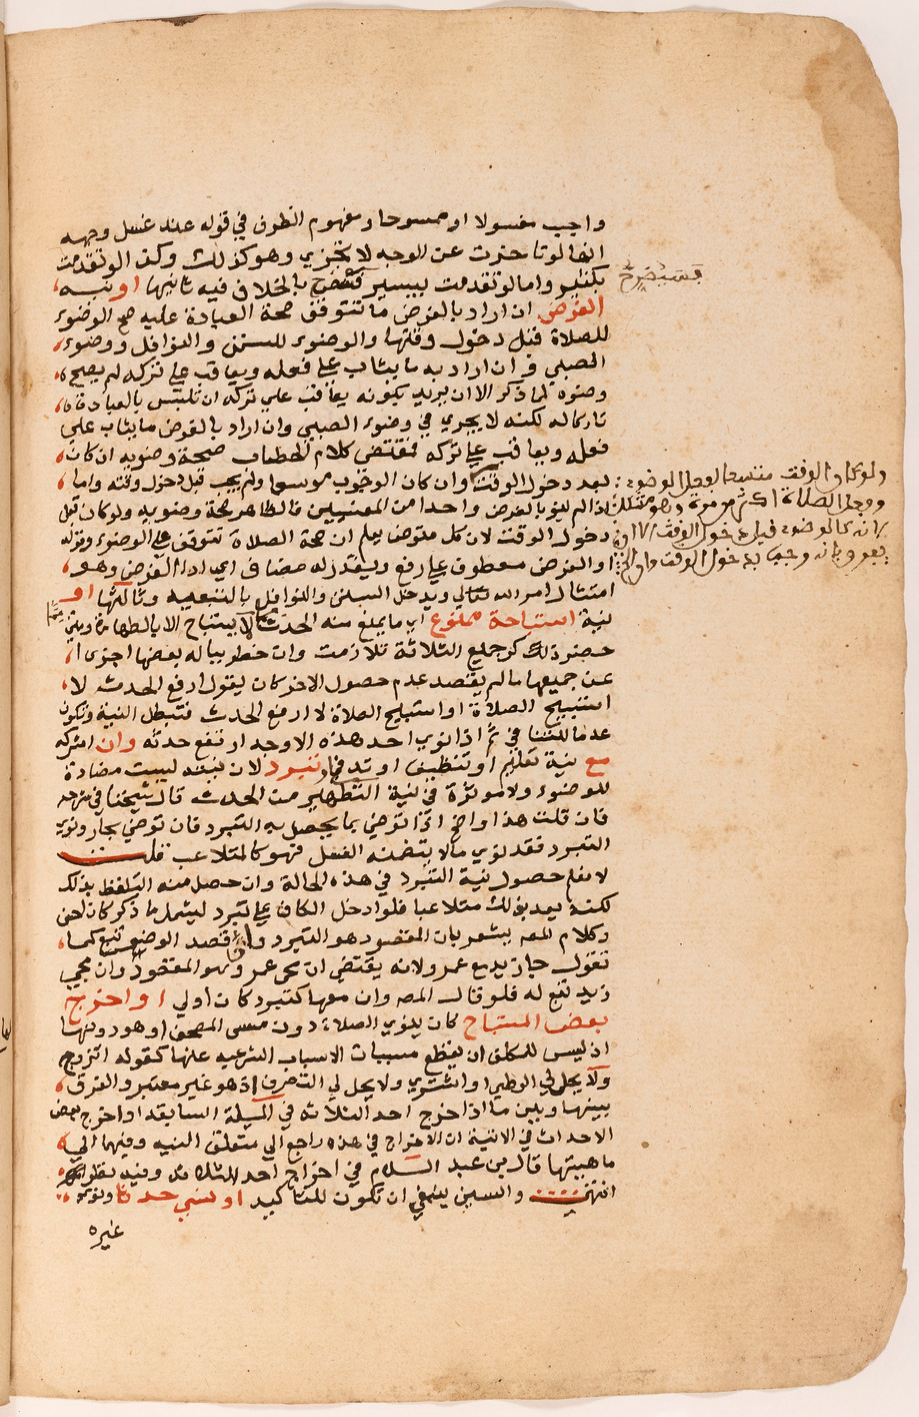 واجب مغسولا او ممسوحا ومفهوم الظرف في قوله عند غسل وجهه
انها لو تاخرت عن الوجه لا تجزي وهو كذلك وكذا لو تقدمت
بكثير واما لو تقدمت بيسير بالخلاف فيه تانيها او نية
الفرض ان اراد بالفرض ما تتوقف صحة العبادة عليه صح الوضوء
للصلاة قبل دخول وقتها والوضوء للسنن والنوافل ووضوء
الصبي وان اراد به ما يثاب على فعله ويعاقب على تركه لم يصح
وضوه لما ذكر الا ان يريد بكونه يعاقب على تركه ان تلبس بالعبادة
تاركا له لكنه لا يجري في وضوء الصبي وان اراد بالفرض ما يثاب على
فعله ويعاقب على تركه فمقتضى كلام الحطاب صحة وضويه ان كان
بعد دخول الوقت وان كان الوجوب موسعا ولم يجب قبل دخول وقته واما
اذا لم ينو بالفرض واحدا من المعنيين فالظاهر صحة وضويه ولو كان قبل
دخول الوقت لان كل متوضي يعلم ان صحة الصلاة تتوقف على الوضوء وقوله
او الفرض معطوف على رفع ويقدر له مضاف اي اداء الفرض وهو
امتثال امر الله تعالى ويدخل السنن والنوافل بالتبعية وثالثها او
نية استباحة ممنوع اي ما يمنع منه الحدث لا يستباح الا بالطهارة ومتى
حضر ذلك كر جميع الثلاثة تلازمت وان خطر بباله بعضها اجزى
عن جميعها ما لم يقصد عدم حصول الاخر كان يقول ارفع الحدث لا
استبيح الصلاة او استبيح الصلاة لا ارفع الحدث فتبطل النية وتكون
عدما للتنافي ثم اذا نوى احد هذه الاوجه ارتفع حدثه وان
مع نية تعليم او تنظيف او تدفي او تبرد لان نيته ليست مضادة
للوضوء ولا موثرة في نية التطهير من الحدث قال شيخنا في شرحه
فان قلت هذا واضح اذا توضي بما يحصل به التبرد فان توضي بحار ونوى
التبرد فقد نوى ما لا يتضمنه الغسل فهو كالمتلاعب قلت
لا نسلم حصول نية التبرد في هذه الحالة وان حصل منه التلفظ بذلك
لكنه يعد بذلك متلاعبا فلو ادخل الكاف على تبرد ليشمل ما ذكر كان احسن
وكلام المصـ يشعر بان المقصود هو التبرد وان قصد الوضوء تبع كما
تقول جا زيد مع عمر ولانه يقتضي ان مجي عمر وهو المقصود وان مجي
زيد تبع له فلو قال المصـ وان معها كتبرد كان اولى او اخرج
بعض المستباح كان ينوي الصلاة دون مس المصحف او هو دونها
اذ ليس للمكلف ان يقطع مسببات الاسباب الشرعيه عنها كقوله اتزوج
ولا يحل لي الوطي او اشتري ولا يحل لي التصرف اذ هو غير معتبر والفرق
بينها وبين ما اذا اخرج احد الثلاثة في المسيلة السابقة او اخرج بعض
الاحداث في الاتية ان الاخراج في هذه راجع الى متعلق النيه وفيهما الى
ماهيتها قال بن عبد السلام في اخراج احد الثلاثة وفيه نظر
انتهى والسين ينبغي ان تكون للتاكيد او نسي حدثا ونوى
غيره
ولو كان الوقت